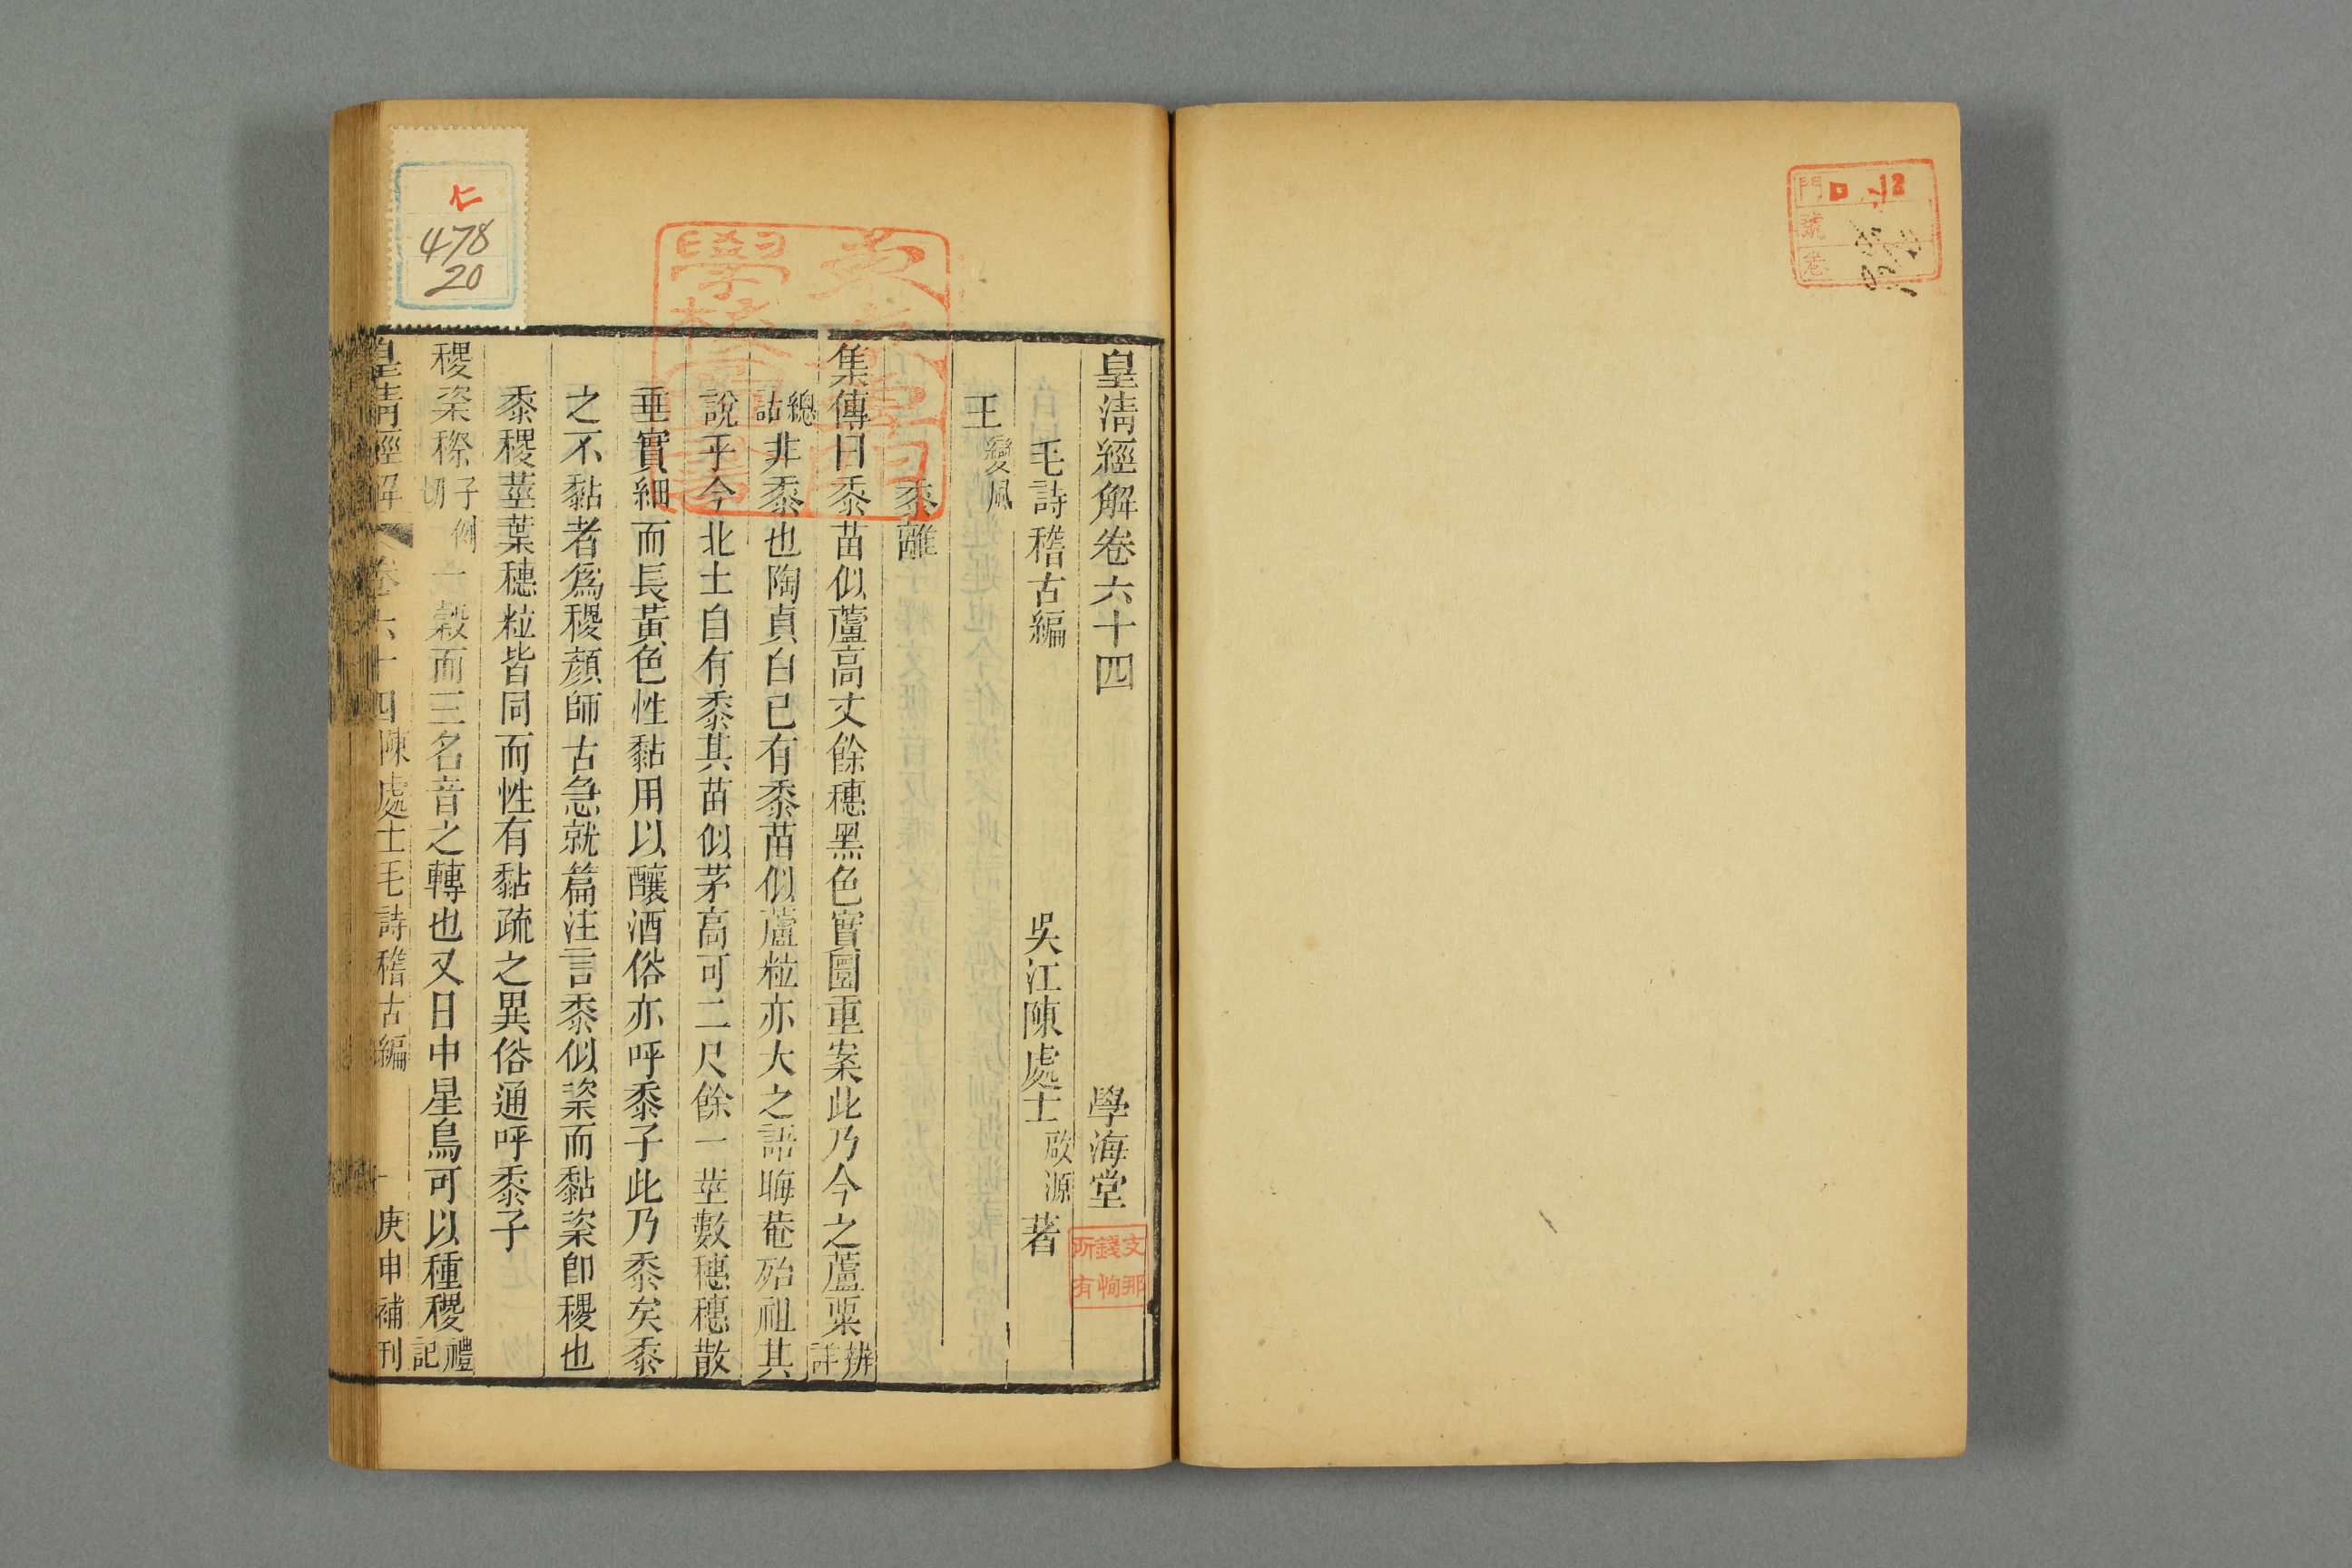 門 口 12
號
卷
皇清經解卷六十四
學海堂
毛詩稽古編
吳江陳處士啟源著
支那
錢恂
所有
王變風
黍離
集傳曰黍苗似蘆高丈餘穗黑色實圓重案此乃今之蘆粟辨詳
總詁非黍也陶貞白已有黍苗似蘆粒亦大之語晦菴殆祖其
說乎今北土自有黍其苗似茅高可二尺餘一莖數穗穗散
垂實細而長黃色性黏用以釀酒俗亦呼黍子此乃黍矣黍
之不黏者爲稷顏師古急就篇注言黍似粢而黏粢卽稷也
黍稷莖葉穗粒皆同而性有黏疏之異俗通呼黍子
稷粢穄子例切一穀而三名音之轉也又日中星鳥可以種稷禮記
皇清經解
卷六十四陳處士毛詩稽古編
一
庚申補刊
仁
478
20